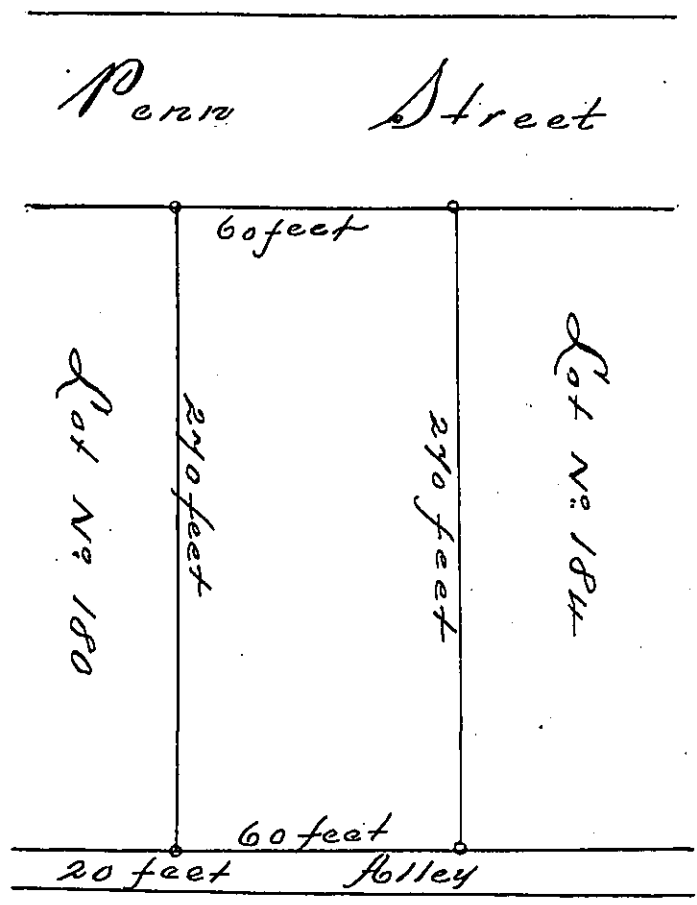 Penn Street
60 feet
Lot Nº 180
270 feet
270 feet
Lot Nº 184
60 feet
20 feet Alley